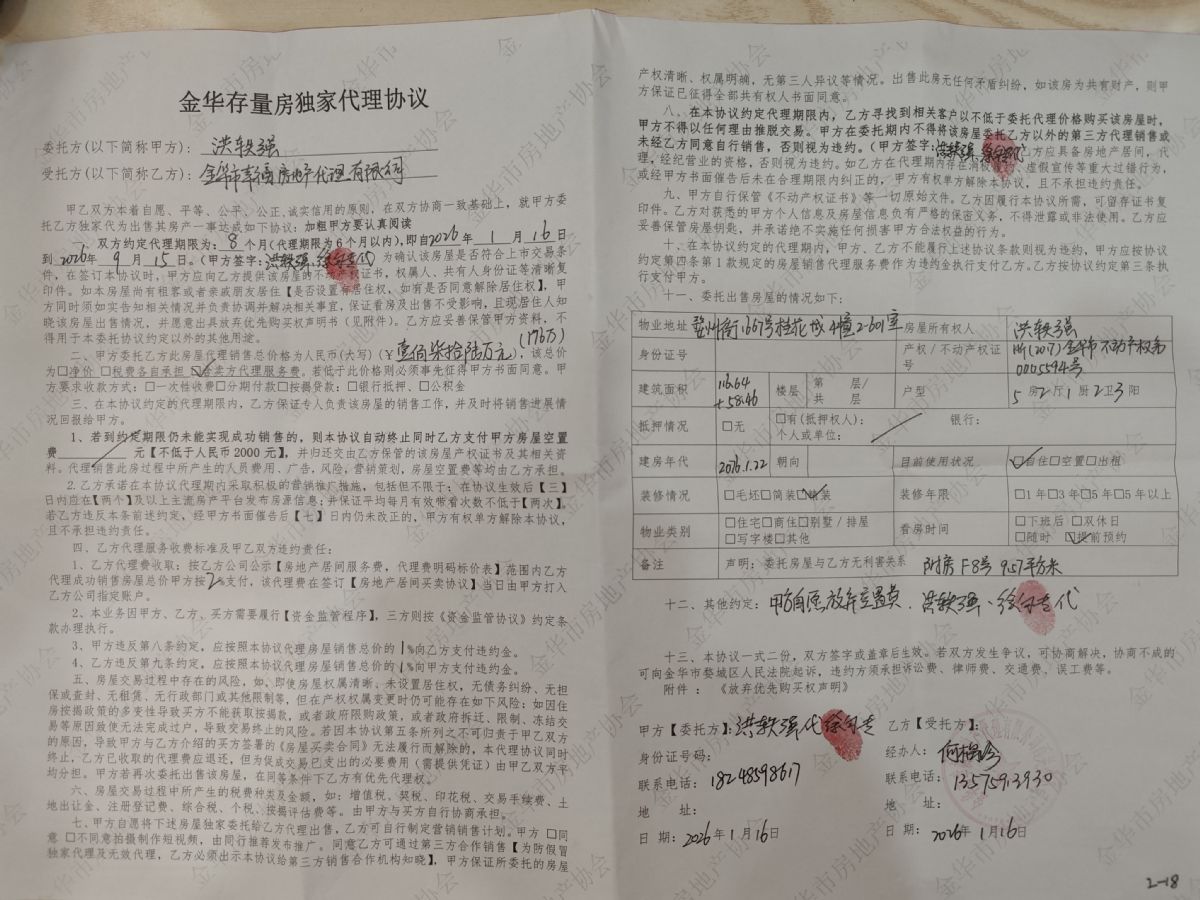 金华存量房独家代理协议
委托方(以下简称甲方)：洪轶强
受托方(以下简称乙方)：金华市幸福房地产代理有限公司
甲乙双方本着自愿、平等、公平、公正、诚实信用的原则，在双方协商一致基础上，就甲方委
托乙方独家代为出售其房产一事达成如下协议：加粗甲方要认真阅读
一、双方约定代理期限为：8个月(代理期限为6个月以内)，即自2026年1月16日
到2026年9月15日。(甲方签字：洪轶强 代)为确认该房屋是否符合上市交易条
件，在签订本协议时，甲方应向乙方提供该房屋的不动产权证书，权属人、共有人身份证等清晰复
印件。如本房屋尚有租客或者亲戚朋友居住【是否设置有居住权，如有是否同意解除居住权】，甲
方同时须如实告知相关情况并负责协调并解决相关事宜，保证看房及出售不受影响，且现居住人知
晓该房屋出售情况，并愿意出具放弃优先购买权声明书（见附件）。乙方应妥善保管甲方资料，不
得用于本委托协议约定以外的其他用途。
(176万)
二、甲方委托乙方此房屋代理销售总价格为人民币(大写)(￥壹佰柒拾陆万元)，该总价
为□净价 □税费各自承担 ☑含卖方代理服务费。若低于此价格则必须事先征得甲方书面同意。甲
方要求收款方式：□一次性收费□分期付款□按揭贷款：□银行抵押、□公积金
三、在本协议约定的代理期限内，乙方保证专人负责该房屋的销售工作，并及时将销售进展情
况回报给甲方。
1、若到约定期限仍未能实现成功销售的，则本协议自动终止同时乙方支付甲方房屋空置
费 元【不低于人民币2000元】，并归还交由乙方保管的该房屋产权证书及其相关资
料。代理销售此房过程中所产生的人员费用、广告，风险，营销策划，房屋空置费等均由乙方承担。
2.乙方承诺在本协议代理期内采取积极的营销推广措施，包括但不限于：在协议生效后【三】
日内应在【两个】及以上主流房产平台发布房源信息；并保证平均每月有效带看次数不低于【两次】。
若乙方违反本条前述约定，经甲方书面催告后【七】日内仍未改正的，甲方有权单方解除本协议，
且不承担违约责任。
四、乙方代理服务收费标准及甲乙双方违约责任：
1、乙方代理费收取：按乙方公司公示【房地产居间服务费，代理费明码标价表】范围内乙方
代理成功销售房屋总价甲方按2%支付，该代理费在签订【房地产居间买卖协议】当日由甲方打入
乙方公司指定账户。
2、本业务因甲方、乙方、买方需要履行【资金监管程序】，三方则按《资金监管协议》约定条
款办理执行。
3、甲方违反第八条约定，应按照本协议代理房屋销售总价的1%向乙方支付违约金。
4、乙方违反第九条约定，应按照本协议代理房屋销售总价的1%向甲方支付违约金。
五、房屋交易过程中存在的风险，如、即使房屋权属清晰、未设置居住权，无债务纠纷、无担
保或查封、无租赁、无行政部门或其他限制等，但在产权权属变更时仍可能存在如下风险：如因住
房按揭政策的多变性导致买方不能获取按揭款，或者政府限购政策，或者政府拆迁、限制、冻结交
易等原因致使无法完成过户，导致交易终止的风险。若因本协议第五条所列之不可归责于甲乙双方
的原因，导致甲方与乙方介绍的买方签署的《房屋买卖合同》无法履行而解除的，本代理协议同时
终止，乙方已收取的代理费应退还，但为促成交易已支出的必要费用(需提供凭证)由甲乙双方平
均分担。甲方若再次委托出售该房屋，在同等条件下乙方有优先代理权。
六、房屋交易过程中所产生的税费种类及金额，如：增值税、契税、印花税、交易手续费、土
地出让金、注册登记费、综合税、个税、按揭评估费等。由甲方与买方自行协商承担。
七、甲方自愿将下述房屋独家委托给乙方代理出售，乙方可自行制定营销销售计划。甲方 □同
意 □不同意拍摄制作短视频，由同行推荐发布推广。同意乙方可通过第三方合作销售【为防假冒
独家代理及无效代理，乙方必须出示本协议给第三方销售合作机构知晓】，甲方保证所委托的房屋
产权清晰、权属明确，无第三人异议等情况。出售此房无任何矛盾纠纷，如该房为共有财产，则甲
方保证已征得全部共有权人书面同意。
八、在本协议约定代理期限内，乙方寻找到相关客户以不低于委托代理价格购买该房屋时，
甲方不得以任何理由推脱交易。甲方在委托期内不得将该房屋委托乙方以外的第三方代理销售或
未经乙方同意自行销售，否则视为违约。(甲方签字：洪轶强 代)乙方应具备房地产居间，代
理，经纪营业的资格，否则视为违约。如乙方在代理期限内存在消极 虚假宣传等重大过错行为，
或经甲方书面催告后未在合理期限内纠正的，甲方有权单方解除本协议，且不承担违约责任。
九、甲方自行保管《不动产权证书》等一切原始文件。乙方因履行本协议所需，可留存证书复
印件。乙方对获悉的甲方个人信息及房屋信息负有严格的保密义务，不得泄露或非法使用。乙方应
妥善保管房屋钥匙，并承诺绝不实施任何损害甲方合法权益的行为。
十、在本协议约定的代理期内，甲方、乙方不能履行上述协议条款则视为违约，甲方应按协议
约定第四条第1款规定的房屋销售代理服务费作为违约金执行支付乙方。乙方按协议约定第三条执
行支付甲方。
十一、委托出售房屋的情况如下：
物业地址 婺州街1667号桂花城4幢2-601室 房屋所有权人 洪轶强
身份证号 产权/不动产权证号 浙(2017)金华市不动产权第0005594号
建筑面积 116.64+58.46 楼层 第 层/共 层 户型 5房2厅1厨2卫3阳
抵押情况 □无 □有(抵押权人)： 银行：
个人或单位：
建房年代 2026.1.22 朝向 目前使用状况 ☑自住□空置□出租
装修情况 □毛坯□简装☑精装 装修年限 □1年□3年□5年□5年以上
物业类别 □住宅□商住□别墅/排屋 □写字楼□其他 看房时间 □下班后 □双休日 □随时 ☑提前预约
备注 声明：委托房屋与乙方无利害关系 附房F8号 9.57平方米
十二、其他约定：甲方自愿放弃空置费．洪轶强、 代
十三、本协议一式二份，双方签字或盖章后生效。若双方发生争议，可协商解决，协商不成的
可向金华市婺城区人民法院起诉，违约方须承担诉讼费、律师费、交通费、误工费等。
附件：《放弃优先购买权声明》
甲方【委托方】：洪轶强代 乙方【受托方】：
身份证号码： 经办人：
联系电话：18248598617 联系电话：13575913930
地 址： 地 址：
日 期：2026年1月16日 日 期：2026年1月16日
2-18
金华市房地产业协会